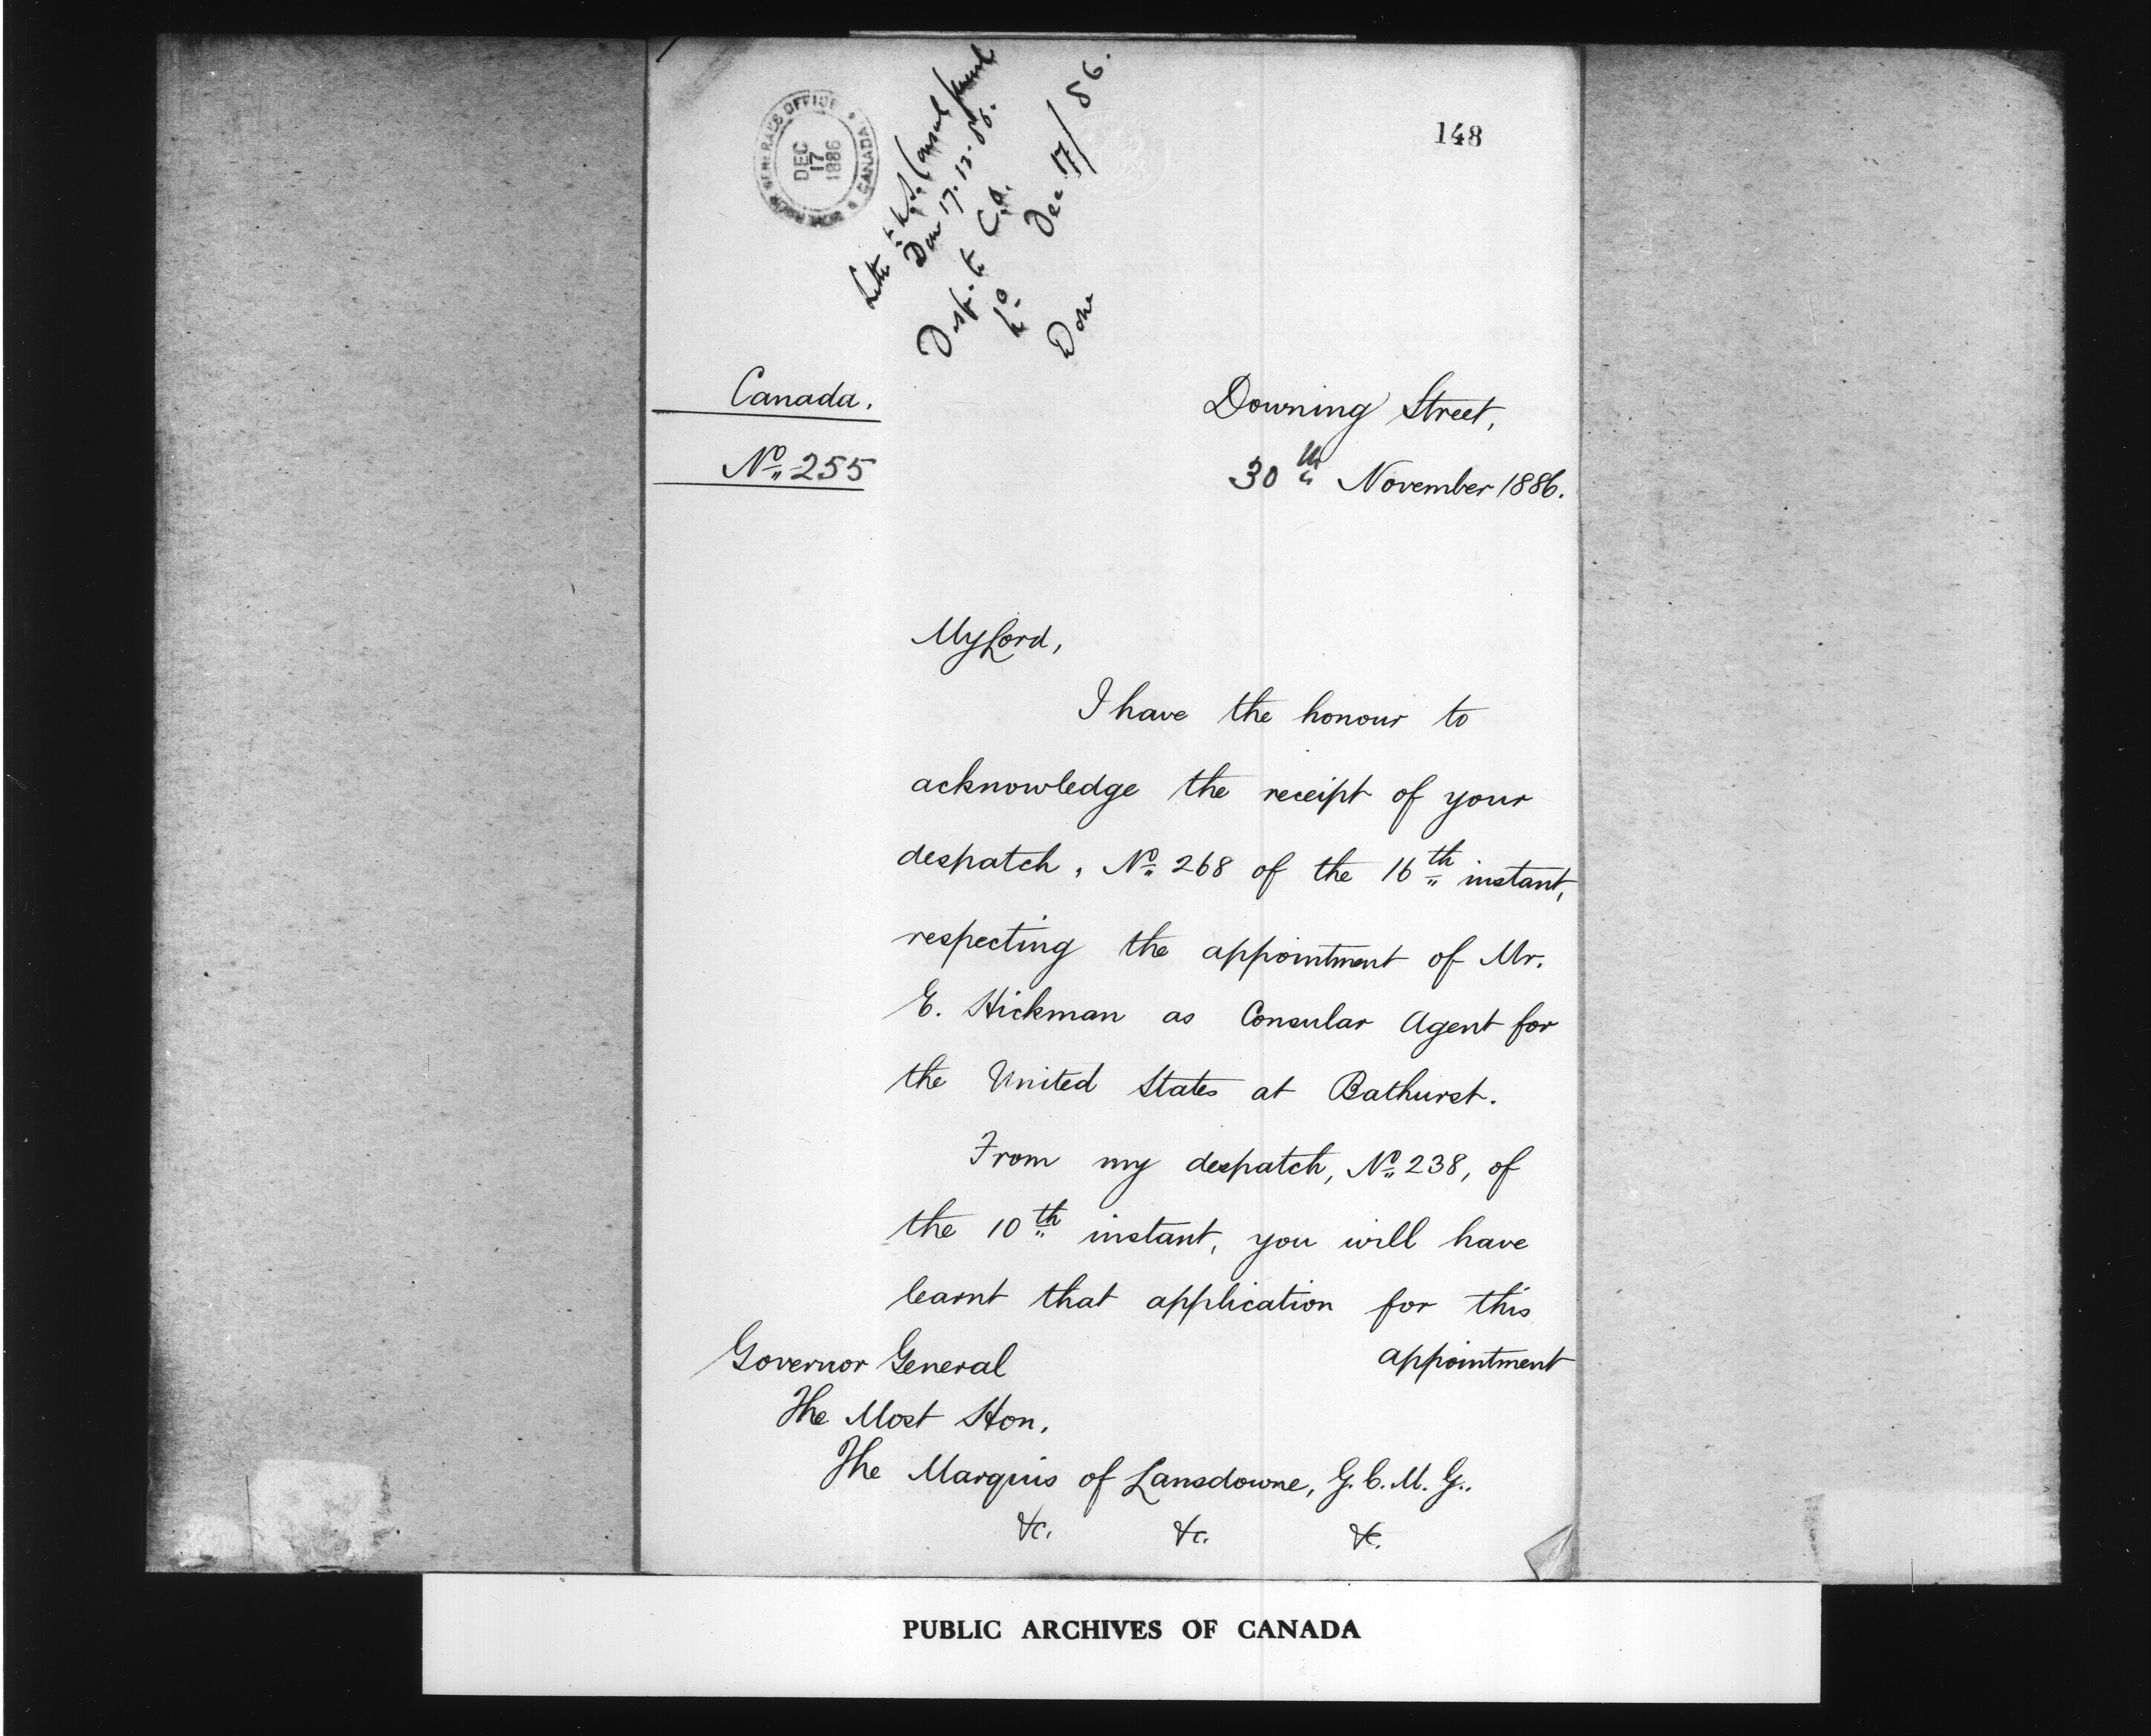 GOVERNOR GENERAL'S OFFICE
CANADA
DEC
17
1886
148
Letter to U.S. Consul
Done 17.12.86.
Desp. to C.O.
Dec 17/86.
Done
Canada.
No. 255
Downing Street,
30th November 1886.
My Lord,
I have the honour to
acknowledge the receipt of your
despatch, No. 268 of the 16th instant,
respecting the appointment of Mr.
E. Hickman as Consular Agent for
the United States at Bathurst.
From my despatch, No. 238, of
the 10th instant, you will have
learnt that application for this
appointment
Governor General
The Most Hon.
The Marquis of Lansdowne, G.C.M.G..
&c. &c. &c.
PUBLIC ARCHIVES OF CANADA